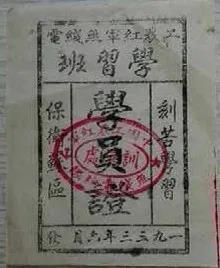 工農紅軍無綫電
學習班
刻苦學習
學員證
保衛蘇區
一九三三年六月發